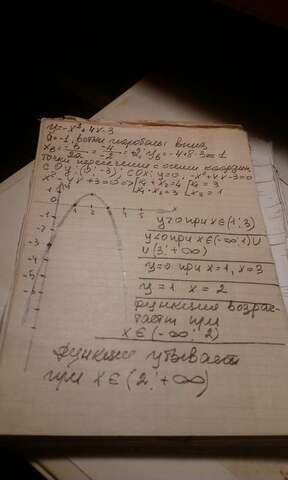 y=-x²+4x-3
a=-1, ветви параболы вниз,
x₈= -b/2a = -4/-2 = 2; y₈=-4+8-3=1
точки пересечения с осями координ.
с Oy: (0; -3); с Ox: y=0, -x²+4x-3=0
x²-4x+3=0 => x₁+x₂=4 x₁=3
x₁·x₂=3 x₂=1
y>0 при x∈(1; 3)
y<0 при x∈(-∞; 1)∪
∪(3; +∞)
y=0 при x=1, x=3
y=1 x=2
функция возрас-
тает при
x∈(-∞; 2)
функция убывает
при x∈(2; +∞)